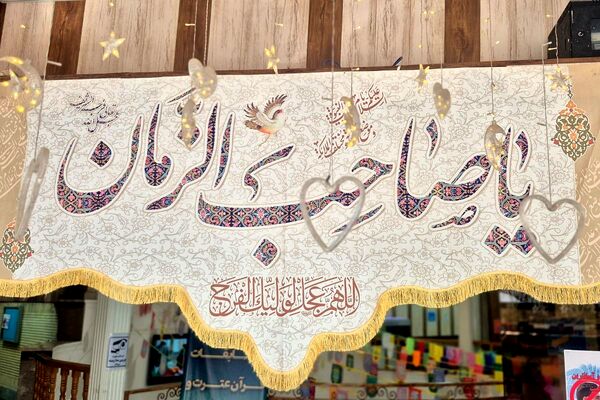 یا صاحب الزمان
اللهم عجل لولیک الفرج
مسابقات
قرآن عترت و